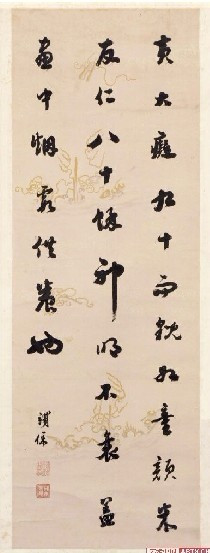 黄大癡九十而貌如童顔米
友仁八十餘神明不衰蓋
畫中烟雲供養也